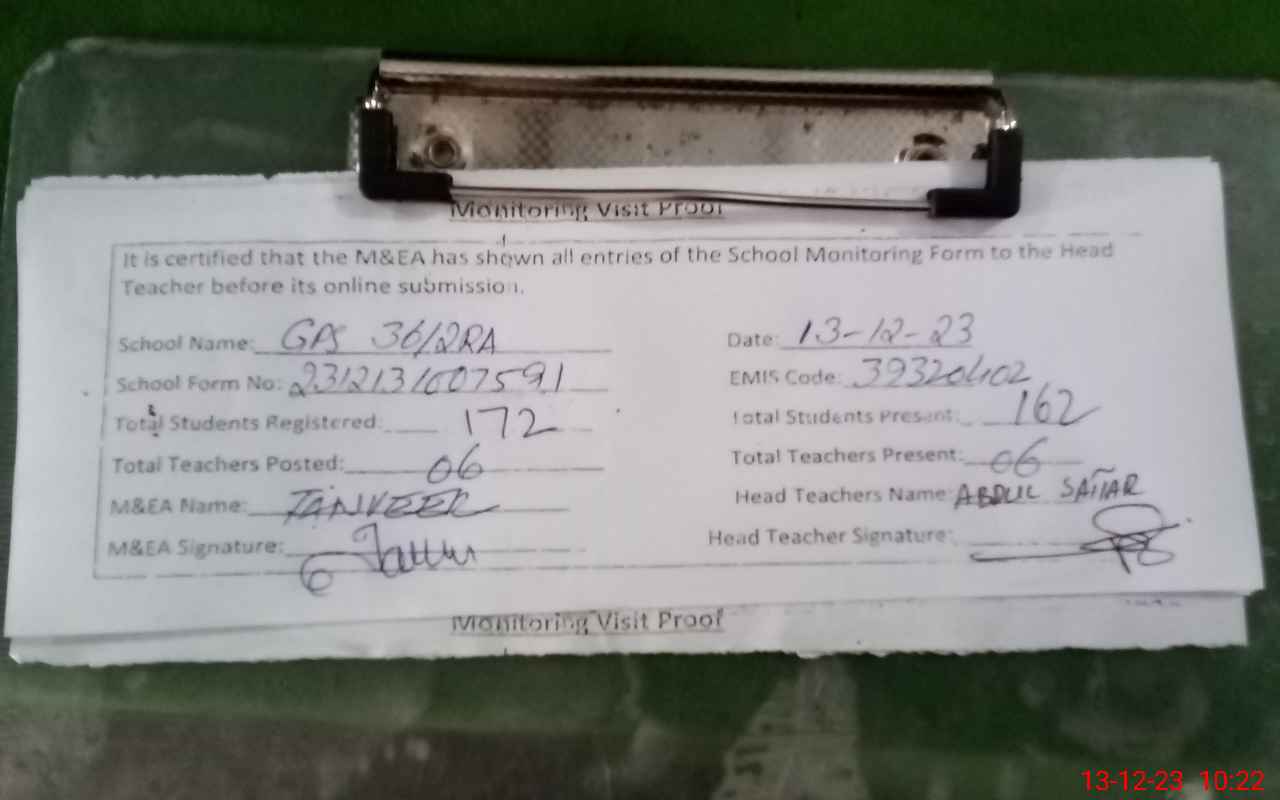 Monitoring Visit Proof
It is certified that the M&EA has shown all entries of the School Monitoring Form to the Head
Teacher before its online submission.
School Name: GPS 36/2RA Date: 13-12-23
School Form No: 2312131007591 EMIS Code: 39320402
Total Students Registered: 172 Total Students Present: 162
Total Teachers Posted: 06 Total Teachers Present: 06
M&EA Name: TANVEER Head Teachers Name: ABDUL SATTAR
M&EA Signature: Head Teacher Signature:
Monitoring Visit Proof
13-12-23 10:22